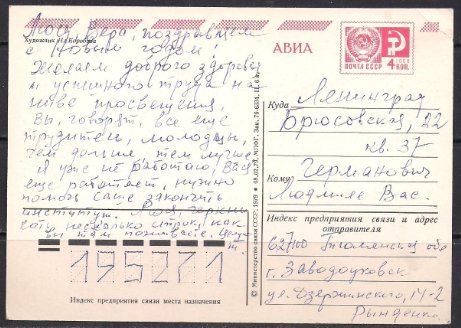 Люся, Вера, поздравляем
с Новым годом!
Желаем доброго здоровья
и успешного труда на
ниве просвещения,
Вы, говорят, все еще
трудитесь, молодцы,
чем дальше, тем лучше
Я уже не работаю, Вася
еще работает, нужно
помочь Саше закончить
институт. Люся, черкни
хоть несколько строк, как
вы поживаете.
Художник
АВИА
ПОЧТА СССР
4 КОП.
Куда Ленинград
Брюсовская, 22
кв. 37
Кому Германович
Людмиле Вас.
Индекс предприятия связи и адрес
отправителя
627100 Тюменская обл
г. Заводоуковск
ул. Дзержинского, 14-2
Рынденко
195271
Индекс предприятия связи места назначения
© Министерство связи СССР, 1969